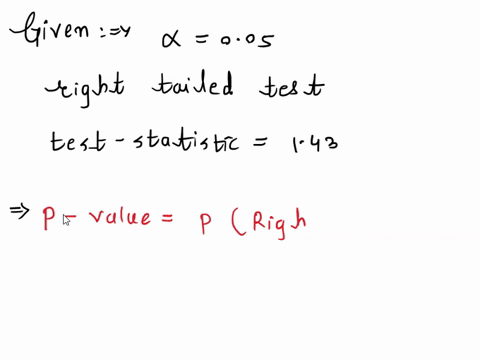 Given :⇒ α = 0.05
right tailed test
test-statistic = 1.43
⇒ P- value = P (Righ